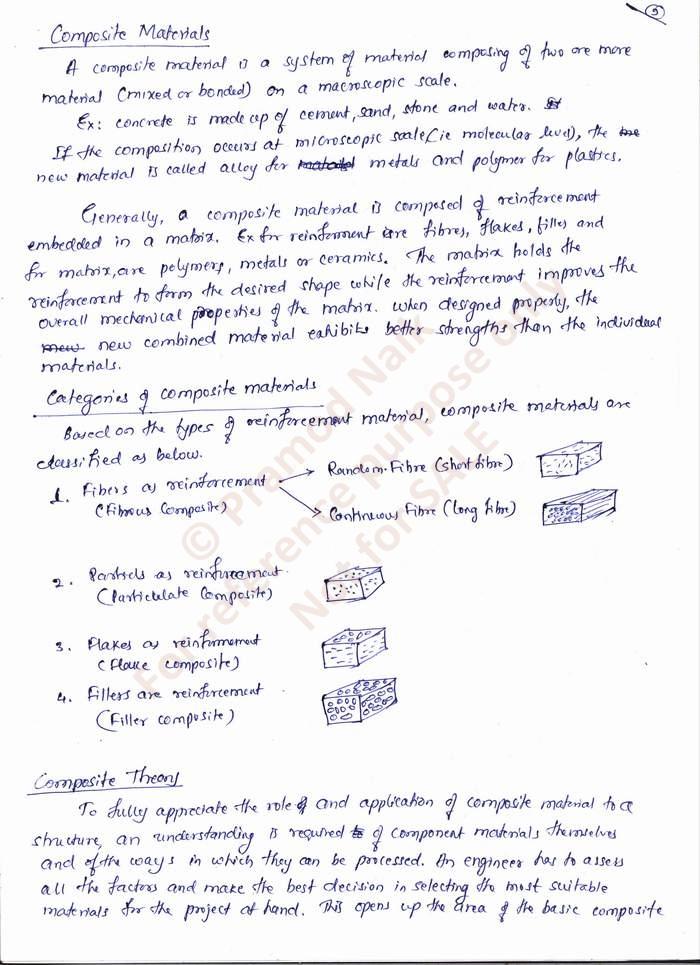 5
Composite Materials
A composite material is a system of material composing of two or more
material (mixed or bonded) on a macroscopic scale.
Ex: concrete is made up of cement, sand, stone and water.
If the composition occurs at microscopic scale (ie molecular level), the
new material is called alloy for metals and polymer for plastics.
Generally, a composite material is composed of reinforcement
embedded in a matrix. Ex for reinforment are fibres, flakes, filles and
for matrix, are polymers, metals or ceramics. The matrix holds the
reinforcement to form the desired shape while the reinforcement improves the
overall mechanical properties of the matrix. when designed properly, the
new combined material exhibits better strengths than the individual
materials.
Categories of composite materials
Based on the types of reinforcement material, composite materials are
classified as below.
1. Fibers as reinforcement
(Fibrous Composite)
Random Fibre (short fibre)
Continuous Fibre (long fibre)
2. Particls as reinforcement.
(Particulate Composite)
3. Flakes as reinformement
(Flake composite)
4. Fillers are reinforcement
(Filler composite)
Composite Theory
To fully appreciate the role of and application of composite material to a
structure, an understanding is required of component materials themselves
and of the ways in which they can be processed. An engineer has to assess
all the factors and make the best decision in selecting the most suitable
materials for the project at hand. This opens up the area of the basic composite
© Pramod Naik
For reference purpose only
Not for SALE